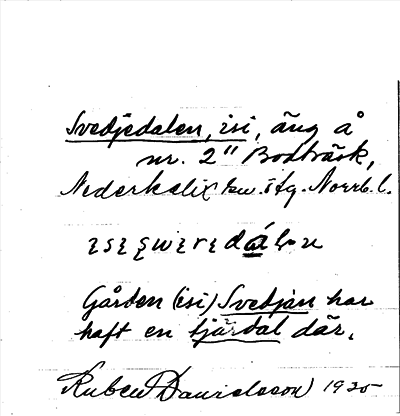 Svedjedalen, isi, äng å
nr. 2" Bodträsk,
Nederkalix sn. itg. Norrb. l.
Gården (isi) Svedjan har
haft en tjärdal där.
Ruben Danielsson 1935